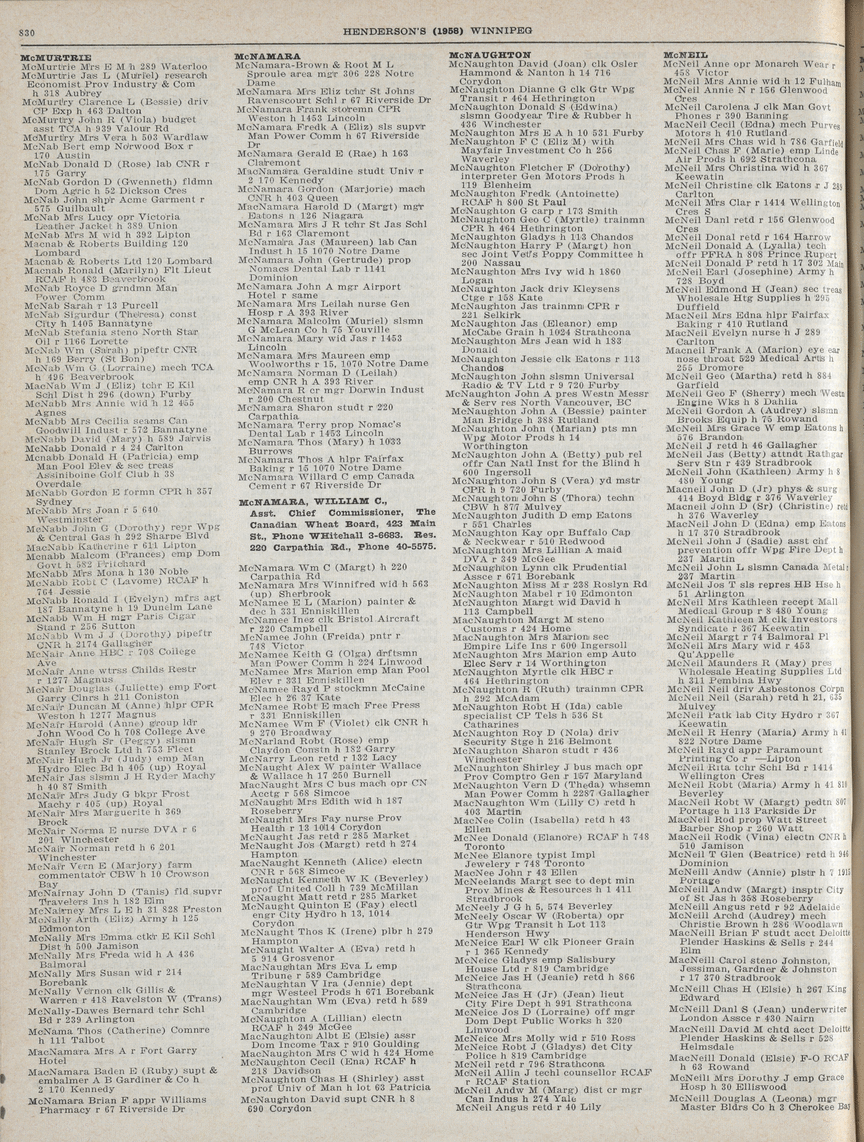 830
HENDERSON'S (1958) WINNIPEG
McMURTRIE
McMurtrie Mrs E M h 289 Waterloo
McMurtrie Jas L (Muriel) research
Economist Prov Industry & Com
h 318 Aubrey
McMurtry Clarence L (Bessie) driv
CP Exp h 463 Dalton
McMurtry John R (Viola) budget
asst TCA h 939 Valour Rd
McMurtry Mrs Vera h 503 Wardlaw
McNab Bert emp Norwood Box r
170 Austin
McNab Donald D (Rose) lab CNR r
175 Garry
McNab Gordon D (Gwenneth) fldmn
Dom Agric h 52 Dickson Cres
McNab John shpr Acme Garment r
575 Guilbault
McNab Mrs Lucy opr Victoria
Leather Jacket h 389 Union
McNab Mrs M wid h 392 Lipton
Macnab & Roberts Building 120
Lombard
Macnab & Roberts Ltd 120 Lombard
Macnab Ronald (Marilyn) Flt Lieut
RCAF h 483 Beaverbrook
McNab Royce D grndmn Man
Power Comm
McNab Sarah r 13 Purcell
McNab Sigurdur (Theresa) const
City h 1405 Bannatyne
McNab Stefania steno North Star
Oil r 1166 Lorette
McNab Wm (Sarah) pipeftr CNR
h 169 Berry (St Bon)
McNab Wm G (Lorraine) mech TCA
h 496 Beaverbrook
MacNab Wm J (Eliz) tchr E Kil
Schl Dist h 296 (down) Furby
McNabb Mrs Annie wid h 12 455
Agnes
McNabb Mrs Cecilia seams Can
Goodwill Indust r 572 Bannatyne
McNabb David (Mary) h 589 Jarvis
McNabb Donald r 4 24 Carlton
Mcnabb Donald H (Patricia) emp
Man Pool Elev & sec treas
Assiniboine Golf Club h 38
Overdale
McNabb Gordon E formn CPR h 357
Sydney
McNabb Mrs Joan r 5 640
Westminster
McNabb John G (Dorothy) repr Wpg
& Central Gas h 292 Sharpe Blvd
MacNabb Katherine r 611 Lipton
Mcnabb Malcolm (Frances) emp Dom
Govt h 582 Pritchard
MacNabb Mrs Mona h 130 Noble
McNabb Robt C (Lavome) RCAF h
764 Jessie
McNabb Ronald I (Evelyn) mfrs agt
187 Bannatyne h 19 Dunelm Lane
McNabb Wm H mgr Paris Cigar
Stand r 256 Sutton
McNabb Wm J J (Dorothy) pipeftr
CNR h 2174 Gallagher
McNair Anne HBC r 708 College
Ave
McNair Anne wtrss Childs Restr
r 1277 Magnus
McNair Douglas (Juliette) emp Fort
Garry Clnrs h 211 Coniston
McNair Duncan M (Anne) hlpr CPR
Weston h 1277 Magnus
McNair Harold (Anne) group ldr
John Wood Co h 708 College Ave
McNair Hugh Sr (Peggy) slsmn
Stanley Brock Ltd h 753 Fleet
McNair Hugh Jr (Judy) emp Man
Hydro Elec Bd h 405 (up) Royal
McNair Jas slsmn J H Ryder Machy
h 40 87 Smith
McNair Mrs Judy G bkpr Frost
Machy r 405 (up) Royal
McNair Mrs Marguerite h 369
Brock
McNair Norma E nurse DVA r 6
201 Winchester
McNair Norman retd h 6 201
Winchester
McNair Vern E (Marjory) farm
commentator CBW h 10 Crowson
Bay
McNairnay John D (Tanis) fld supvr
Travelers Ins h 182 Elm
McNairney Mrs L E h 31 828 Preston
McNally Arth (Eliz) Army h 125
Edmonton
McNally Mrs Emma ctkr E Kil Schl
Dist h 500 Jamison
McNally Mrs Freda wid h A 436
Balmoral
McNally Mrs Susan wid r 214
Borebank
McNally Vernon clk Gillis &
Warren r 418 Ravelston W (Trans)
McNally-Dawes Bernard tchr Schl
Bd r 239 Arlington
McNama Thos (Catherine) Comnre
h 111 Talbot
MacNamara Mrs A r Fort Garry
Hotel
MacNamara Baden E (Ruby) supt &
embalmer A B Gardiner & Co h
2 170 Kennedy
McNamara Brian F appr Williams
Pharmacy r 67 Riverside Dr
McNAMARA
McNamara-Brown & Root M L
Sproule area mgr 306 228 Notre
Dame
McNamara Mrs Eliz tchr St Johns
Ravenscourt Schl r 67 Riverside Dr
McNamara Frank storemn CPR
Weston h 1453 Lincoln
McNamara Fredk A (Eliz) sls supvr
Man Power Comm h 67 Riverside
Dr
McNamara Gerald E (Rae) h 163
Claremont
MacNamara Geraldine studt Univ r
2 170 Kennedy
McNamara Gordon (Marjorie) mach
CNR h 403 Queen
MacNamara Harold D (Margt) mgr
Eatons n 126 Niagara
McNamara Mrs J R tchr St Jas Schl
Bd r 163 Claremont
McNamara Jas (Maureen) lab Can
Indust h 15 1070 Notre Dame
McNamara John (Gertrude) prop
Nomacs Dental Lab r 1141
Dominion
McNamara John A mgr Airport
Hotel r same
McNamara Mrs Leilah nurse Gen
Hosp r A 393 River
McNamara Malcolm (Muriel) slsmn
G McLean Co h 75 Youville
McNamara Mary wid Jas r 1453
Lincoln
McNamara Mrs Maureen emp
Woolworths r 15, 1070 Notre Dame
McNamara Norman D (Leilah)
emp CNR h A 393 River
McNamara R cr mgr Dorwin Indust
r 200 Chestnut
McNamara Sharon studt r 220
Carpathia
McNamara Terry prop Nomac's
Dental Lab r 1453 Lincoln
McNamara Thos (Mary) h 1033
Burrows
McNamara Thos A hlpr Fairfax
Baking r 15 1070 Notre Dame
McNamara Willard C emp Canada
Cement r 67 Riverside Dr
McNAMARA, WILLIAM C.,
Asst. Chief Commissioner, The
Canadian Wheat Board, 423 Main
St., Phone WHitehall 3-6683. Res.
220 Carpathia Rd., Phone 40-5575.
McNamara Wm C (Margt) h 220
Carpathia Rd
McNamara Mrs Winnifred wid h 563
(up) Sherbrook
McNamee E L (Marion) painter &
dec h 331 Enniskillen
McNamee Inez clk Bristol Aircraft
r 220 Campbell
McNamee John (Freida) pntr r
748 Victor
McNamee Keith G (Olga) drftsmn
Man Power Comm h 224 Linwood
McNamee Mrs Marion emp Man Pool
Elev r 331 Enniskillen
McNamee Rayd P stockmn McCaine
Elect h 26 37 Kate
McNamee Robt E mach Free Press
r 331 Enniskillen
McNamee Wm F (Violet) clk CNR h
9 270 Broadway
McNarland Robt (Rose) emp
Claydon Constn h 182 Garry
McNarry Leon retd r 132 Lacy
McNaught Alex W painter Wallace
& Wallace h 17 250 Burnell
MacNaught Mrs C bus mach opr CN
Acctg r 568 Simcoe
McNaught Mrs Edith wid h 187
Roseberry
McNaught Mrs Fay nurse Prov
Health r 13 1014 Corydon
McNaught Jas retd r 285 Market
McNaught Jos (Margt) retd h 274
Hampton
MacNaught Kenneth (Alice) electn
CNR r 568 Simcoe
McNaught Kenneth W K (Beverley)
prof United Coll h 739 McMillan
McNaught Matt retd r 285 Market
McNaught Quinton E (Fay) electl
engr City Hydro h 13, 1014
Corydon
McNaught Thos K (Irene) plbr h 279
Hampton
McNaught Walter A (Eva) retd h
5 914 Grosvenor
MacNaughtan Mrs Eva L emp
Tribune r 589 Cambridge
McNaughtan V Ira (Jennie) dept
mgr Westeel Prods h 671 Borebank
MacNaughtan Wm (Eva) retd h 589
Cambridge
McNaughton A (Lillian) electn
RCAF h 349 McGee
MacNaughton Albt E (Elsie) assr
Dom Income Tax r 910 Goulding
MacNaughton Mrs C wid h 424 Home
MacNaughton Cecil (Ena) RCAF h
218 Davidson
McNaughton Chas H (Shirley) asst
prof Univ of Man h lot 63 Patricia
McNaughton David supt CNR h 8
690 Corydon
McNAUGHTON
McNaughton David (Joan) clk Osler
Hammond & Nanton h 14 716
Corydon
McNaughton Dianne G clk Gtr Wpg
Transit r 464 Hethrington
McNaughton Donald S (Edwina)
slsmn Goodyear Tire & Rubber h
436 Winchester
McNaughton Mrs E A h 10 531 Furby
McNaughton F C (Eliz M) with
Mayfair Investment Co h 256
Waverley
McNaughton Fletcher F (Dorothy)
interpreter Gen Motors Prods h
119 Blenheim
McNaughton Fredk (Antoinette)
RCAF h 800 St Paul
McNaughton G carp r 173 Smith
McNaughton Geo C (Myrtle) trainmn
CPR h 464 Hethrington
McNaughton Gladys h 113 Chandos
McNaughton Harry P (Margt) hon
sec Joint Vet's Poppy Committee h
200 Nassau
McNaughton Mrs Ivy wid h 1860
Logan
McNaughton Jack driv Kleysens
Ctge r 158 Kate
McNaughton Jas trainmn CPR r
221 Selkirk
McNaughton Jas (Eleanor) emp
McCabe Grain h 1024 Strathcona
McNaughton Mrs Jean wid h 183
Donald
McNaughton Jessie clk Eatons r 113
Chandos
McNaughton John slsmn Universal
Radio & TV Ltd r 9 720 Furby
McNaughton John A pres Westn Messr
& Serv res North Vancouver, BC
McNaughton John A (Bessie) painter
Man Bridge h 388 Rutland
McNaughton John (Marian) pts mn
Wpg Motor Prods h 14
Worthington
McNaughton John A (Betty) pub rel
offr Can Natl Inst for the Blind h
600 Ingersoll
McNaughton John S (Vera) yd mstr
CPR h 9 720 Furby
McNaughton John S (Thora) techn
CBW h 877 Mulvey
McNaughton Judith D emp Eatons
r 551 Charles
McNaughton Kay opr Buffalo Cap
& Neckwear r 510 Redwood
McNaughton Mrs Lillian A maid
DVA r 349 McGee
MacNaughton Lynn clk Prudential
Assce r 671 Borebank
McNaughton Miss M r 238 Roslyn Rd
McNaughton Mabel r 10 Edmonton
McNaughton Margt wid David h
113 Campbell
MacNaughton Margt M steno
Customs r 424 Home
MacNaughton Mrs Marion sec
Empire Life Ins r 600 Ingersoll
McNaughton Mrs Marion emp Auto
Elec Serv r 14 Worthington
McNaughton Myrtle clk HBC r
464 Hethrington
McNaughton R (Ruth) trainmn CPR
h 292 McAdam
McNaughton Robt H (Ida) cable
specialist CP Tels h 536 St
Catharines
McNaughton Roy D (Nola) driv
Security Stge h 216 Belmont
McNaughton Sharon studt r 436
Winchester
McNaughton Shirley J bus mach opr
Prov Comptro Gen r 157 Maryland
McNaughton Vern D (Theda) whsemn
Man Power Comm h 2287 Gallagher
MacNaughton Wm (Lilly C) retd h
403 Martin
MacNee Colin (Isabella) retd h 43
Ellen
McNee Donald (Elanore) RCAF h 748
Toronto
McNee Elanore typist Impl
Jewelery r 748 Toronto
MacNee John r 43 Ellen
McNeelands Margt sec to dept min
Prov Mines & Resources h 1 411
Stradbrook
McNeely J G h 5, 574 Beverley
McNeely Oscar W (Roberta) opr
Gtr Wpg Transit h Lot 113
Henderson Hwy
McNeice Earl W clk Pioneer Grain
r 1 365 Kennedy
McNeice Gladys emp Salisbury
House Ltd r 819 Cambridge
McNeice Jas H (Jeanie) retd h 866
Strathcona
McNeice Jas H (Jr) (Jean) lieut
City Fire Dept h 991 Strathcona
McNeice Jos D (Lorraine) off mgr
Dom Dept Public Works h 320
Linwood
McNeice Mrs Molly wid r 510 Ross
McNeice Robt J (Gladys) det City
Police h 819 Cambridge
McNeil retd r 796 Strathcona
McNeil Allin J techl counsellor RCAF
r RCAF Station
McNeil Andw M (Marg) dist cr mgr
Can Indus h 274 Yale
McNeil Angus retd r 40 Lily
McNEIL
McNeil Anne opr Monarch Wear r
458 Victor
McNeil Mrs Annie wid h 12 Fulham
McNeil Annie N r 156 Glenwood
Cres
McNeil Carolena J clk Man Govt
Phones r 390 Banning
MacNeil Cecil (Edna) mech Purves
Motors h 410 Rutland
McNeil Mrs Chas wid h 786 Garfield
McNeil Chas F (Marie) emp Linde
Air Prods h 692 Strathcona
McNeil Mrs Christina wid h 367
Keewatin
McNeil Christine clk Eatons r J 289
Carlton
McNeil Mrs Clar r 1414 Wellington
Cres S
McNeil Danl retd r 156 Glenwood
Cres
McNeil Donal retd r 164 Harrow
McNeil Donald A (Lyalla) tech
offr PFRA h 808 Prince Rupert
MacNeil Donald P retd h 17 302 Main
McNeil Earl (Josephine) Army h
728 Boyd
McNeil Edmond H (Jean) sec treas
Wholesale Htg Supplies h 295
Duffield
MacNeil Mrs Edna hlpr Fairfax
Baking r 410 Rutland
MacNeil Evelyn nurse h J 289
Carlton
Macneil Frank A (Marion) eye ear
nose throat 529 Medical Arts h
255 Dromore
McNeil Geo (Martha) retd h 884
Garfield
McNeil Geo F (Sherry) mech Westn
Engine Wks h 8 Dahlia
McNeil Gordon A (Audrey) slsmn
Brooks Equip h 75 Rowand
McNeil Mrs Grace W emp Eatons h
576 Brandon
McNeil J retd h 46 Gallagher
McNeil Jas (Betty) attndt Rathgar
Serv Stn r 439 Stradbrook
McNeil John (Kathleen) Army h 8
480 Young
MacNeil John D (Jr) phys & surg
414 Boyd Bldg r 376 Waverley
Macneil John D (Sr) (Christine) retd
h 376 Waverley
MacNeil John D (Edna) emp Eatons
h 17 370 Stradbrook
MacNeil John J (Sadie) asst chf
prevention offr Wpg Fire Dept h
237 Martin
MacNeil John L slsmn Canada Metal r
237 Martin
McNeil Jos T sls repres HB Hse h
51 Arlington
McNeil Mrs Kathleen recept Mall
Medical Group r 8 480 Young
McNeil Kathleen M clk Investors
Syndicate r 367 Keewatin
McNeil Margt r 74 Balmoral Pl
McNeil Mrs Mary wid r 453
Qu'Appelle
McNeil Maunders R (May) pres
Wholesale Heating Supplies Ltd
h 311 Pembina Hwy
McNeil Neil driv Asbestonos Corpn
McNeil Neil (Sarah) retd h 21, 635
Mulvey
McNeil Patk lab City Hydro r 367
Keewatin
McNeil R Henry (Maria) Army h 41
822 Notre Dame
McNeil Rayd appr Paramount
Printing Co r —Lipton
McNeil Rita tchr Schl Bd r 1414
Wellington Cres
McNeil Robt (Maria) Army h 41
Beverley
MacNeil Robt W (Margt) pedtn 807
Portage h 113 Parkside Dr
MacNeil Rod prop Watt Street
Barber Shop r 260 Watt
MacNeil Rodk (Vina) electn CNR h
510 Jamison
McNeil T Glen (Beatrice) retd h 946
Dominion
MacNeill Andw (Annie) plstr h 7
Portage
MacNeill Andw (Margt) insptr City
of St Jas h 358 Roseberry
MacNeill Angus retd r 92 Adelaide
MacNeill Archd (Audrey) mech
Christie Brown h 286 Woodlawn
MacNeill Brian F studt acct Deloitte
Plender Haskins & Sells r 244
Elm
MacNeill Carol steno Johnston,
Jessiman, Gardner & Johnston
r 17 370 Stradbrook
McNeill Chas H (Elsie) h 267 King
Edward
McNeill Danl S (Jean) underwriter
London Assce r 430 Nairn
MacNeill David M chtd acct Deloitte
Plender Haskins & Sells r 528
Helmsdale
MacNeill Donald (Elsie) F-O RCAF
h 63 Rowand
McNeill Mrs Dorothy J emp Grace
Hosp h 30 Elliswood
McNeill Douglas A (Leona) mgr
Master Bldrs Co h 3 Cherokee Bay